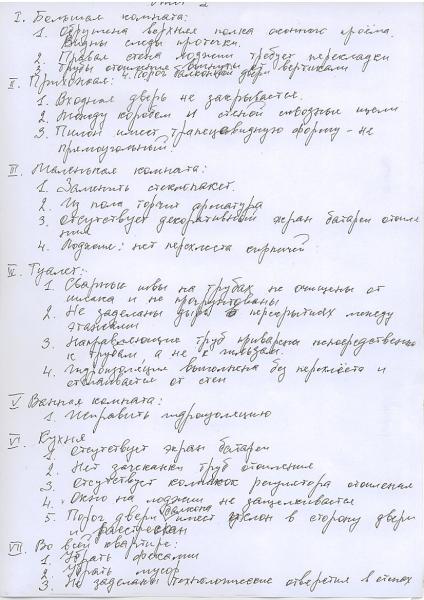 I. Большая комната:
1. Обрушена верхняя полка оконного проёма.
Видны следы протечки.
2. Правая стена лоджии требует перекладки
3. Трубы отопления выгнуты от вертикали
II. Прихожая: 4. Порог балконной двери
1. Входная дверь не закрывается.
2. Между коробом и стеной сквозные щели
3. Пилон имеет трапецевидную форму - не
прямоугольный.
III. Маленькая комната:
1. Заменить стеклопакет.
2. Из пола торчит арматура
3. Отсутствует декоративный экран батареи отопле
ния
4. Лоджия: нет перехлеста кирпичей
IV. Туалет:
1. Сварные швы на трубах не очищены от
шлака и не прогрунтованы
2. Не заделаны дыры в перекрытиях между
этажами
3. Направляющие труб приварены непосредственно
к трубам, а не к гильзам.
4. Гидроизоляция выполнена без перехлёста и
отслаивается от стен
V. Ванная комната:
1. Исправить гидроизоляцию
VI. Кухня
1. Отсутствует экран батареи
2. Нет зачеканки труб отопления
3. Отсутствует колпачок регулятора отопления
4. Окно на лоджии не защелкивается
5. Порог двери балкона имеет уклон в сторону двери
и растрескан
VII. Во всей квартире:
1. Убрать фекалии
2. Убрать мусор
3. Не заделаны технологические отверстия в стенах